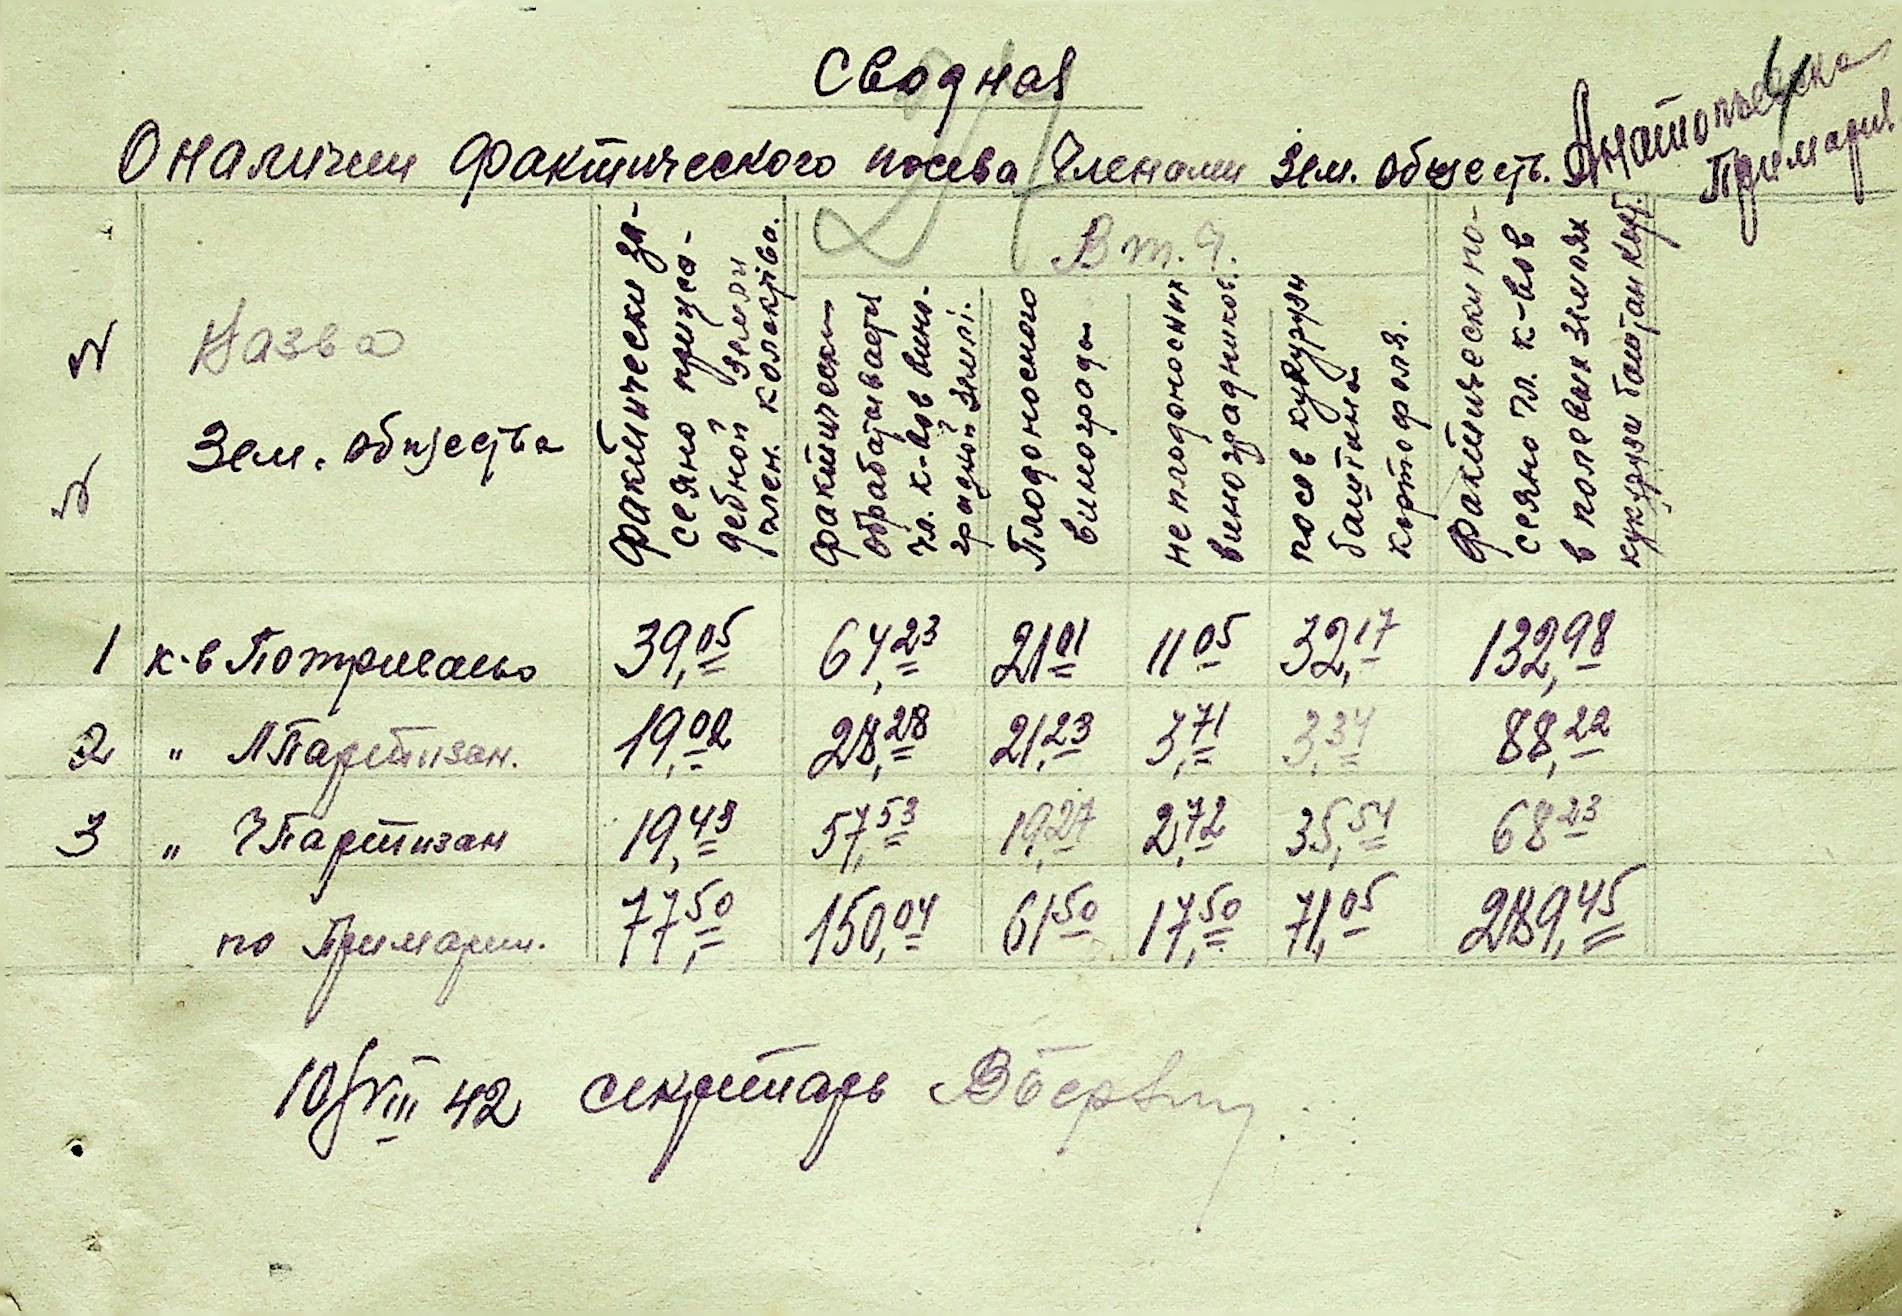 Сводная
О наличии фактического посева членами Зем. обществ. Анатольевка
Примария
№ №
Назва
Зем. общества
фактически за-
сеяно приуса-
дебной земли
член. колектива.
В т. ч.
фактически
обрабатывает
чл. к-вов вино-
градной земли.
Плодоносного
винограда
не плодоносних
виноградников.
посев кукурузи
баштана
картофеля.
фактически по-
сеяно чл. к-вов
в полевых землях
кукурузи баштан карт.
1 к-в 39,05 64,23 21 01 11 05 32,17 132,98
2 " Л Партизан. 19,02 28,28 21,23 3,71 3,34 88,22
3 " Ч Партизан 19,43 57,53 19,27 2,72 35,54 68 23
по Примарии. 77,50 150,04 61 50 17,50 71,05 289,45
10/VIII 42 секретарь